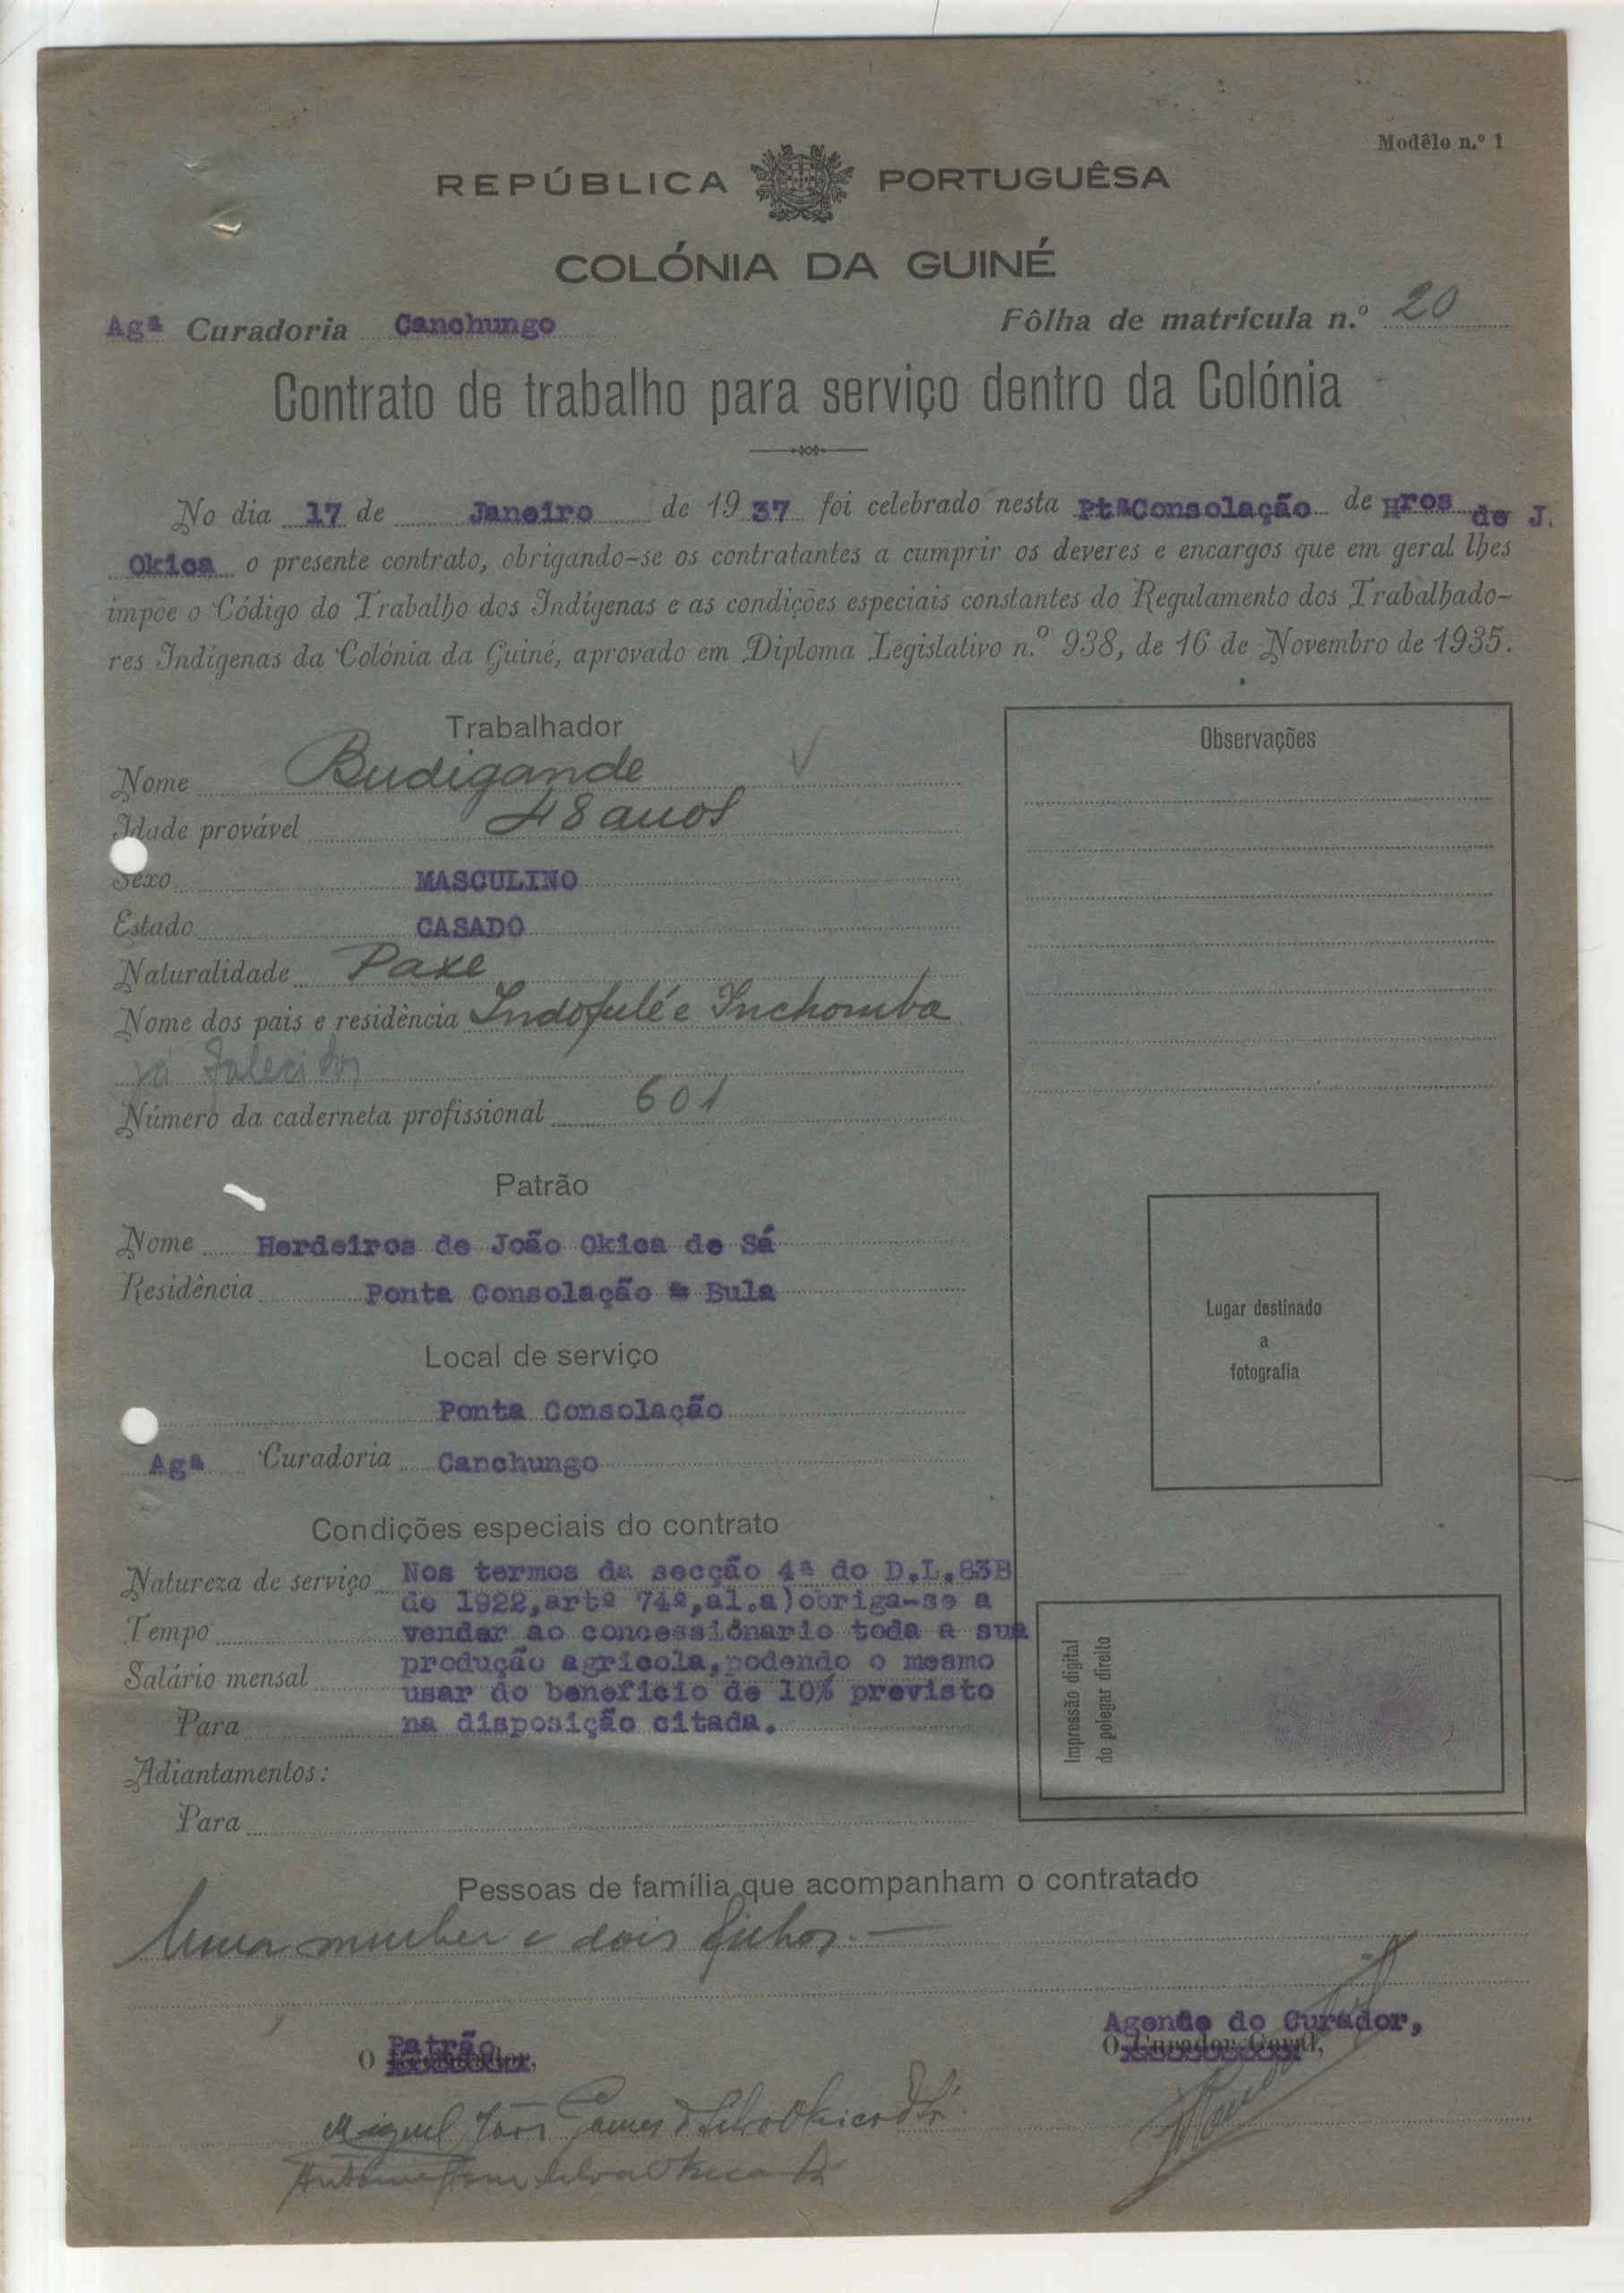 Modêlo n.º 1
REPÚBLICA PORTUGUÊSA
COLÓNIA DA GUINÉ
Agª Curadoria Canchungo Fôlha de matrícula n.º 20
Contrato de trabalho para serviço dentro da Colónia
No dia 17 de Janeiro de 1937 foi celebrado nesta PtªConsolação de Hros de J.
Okica o presente contrato, obrigando-se os contratantes a cumprir os deveres e encargos que em geral lhes
impõe o Código do Trabalho dos Indígenas e as condições especiais constantes do Regulamento dos Trabalhado-
res Indígenas da Colónia da Guiné, aprovado em Diploma Legislativo n.º 938, de 16 de Novembro de 1935.
Trabalhador
Nome Budigande
Idade provável 48 anos
Sexo MASCULINO
Estado CASADO
Naturalidade Paxe
Nome dos pais e residência Indofulé e Inchomba
já falecidos
Número da caderneta profissional 601
Patrão
Nome Herdeiros de João Okica de Sá
Residência Ponta Consolação Bula
Local de serviço
Ponta Consolação
Agª Curadoria Canchungo
Condições especiais do contrato
Natureza de serviço Nos termos da secção 4ª do D.L.83B
de 1922,artº 74º,al.a)obriga-se a
Tempo vender ao concessiónario toda a sua
Salário mensal produção agricola,podendo o mesmo
usar do beneficio de 10% previsto
Para na disposição citada.
Adiantamentos:
Para
Observações
Lugar destinado
a
fotografia
Impressão digital
do polegar direito
Pessoas de família que acompanham o contratado
Uma mulher e dois filhos.—
O Patrão
Agente do Curador,
O Curador Geral,
Miguel João Gomes d Silva Okica d Sá
Silva Okica